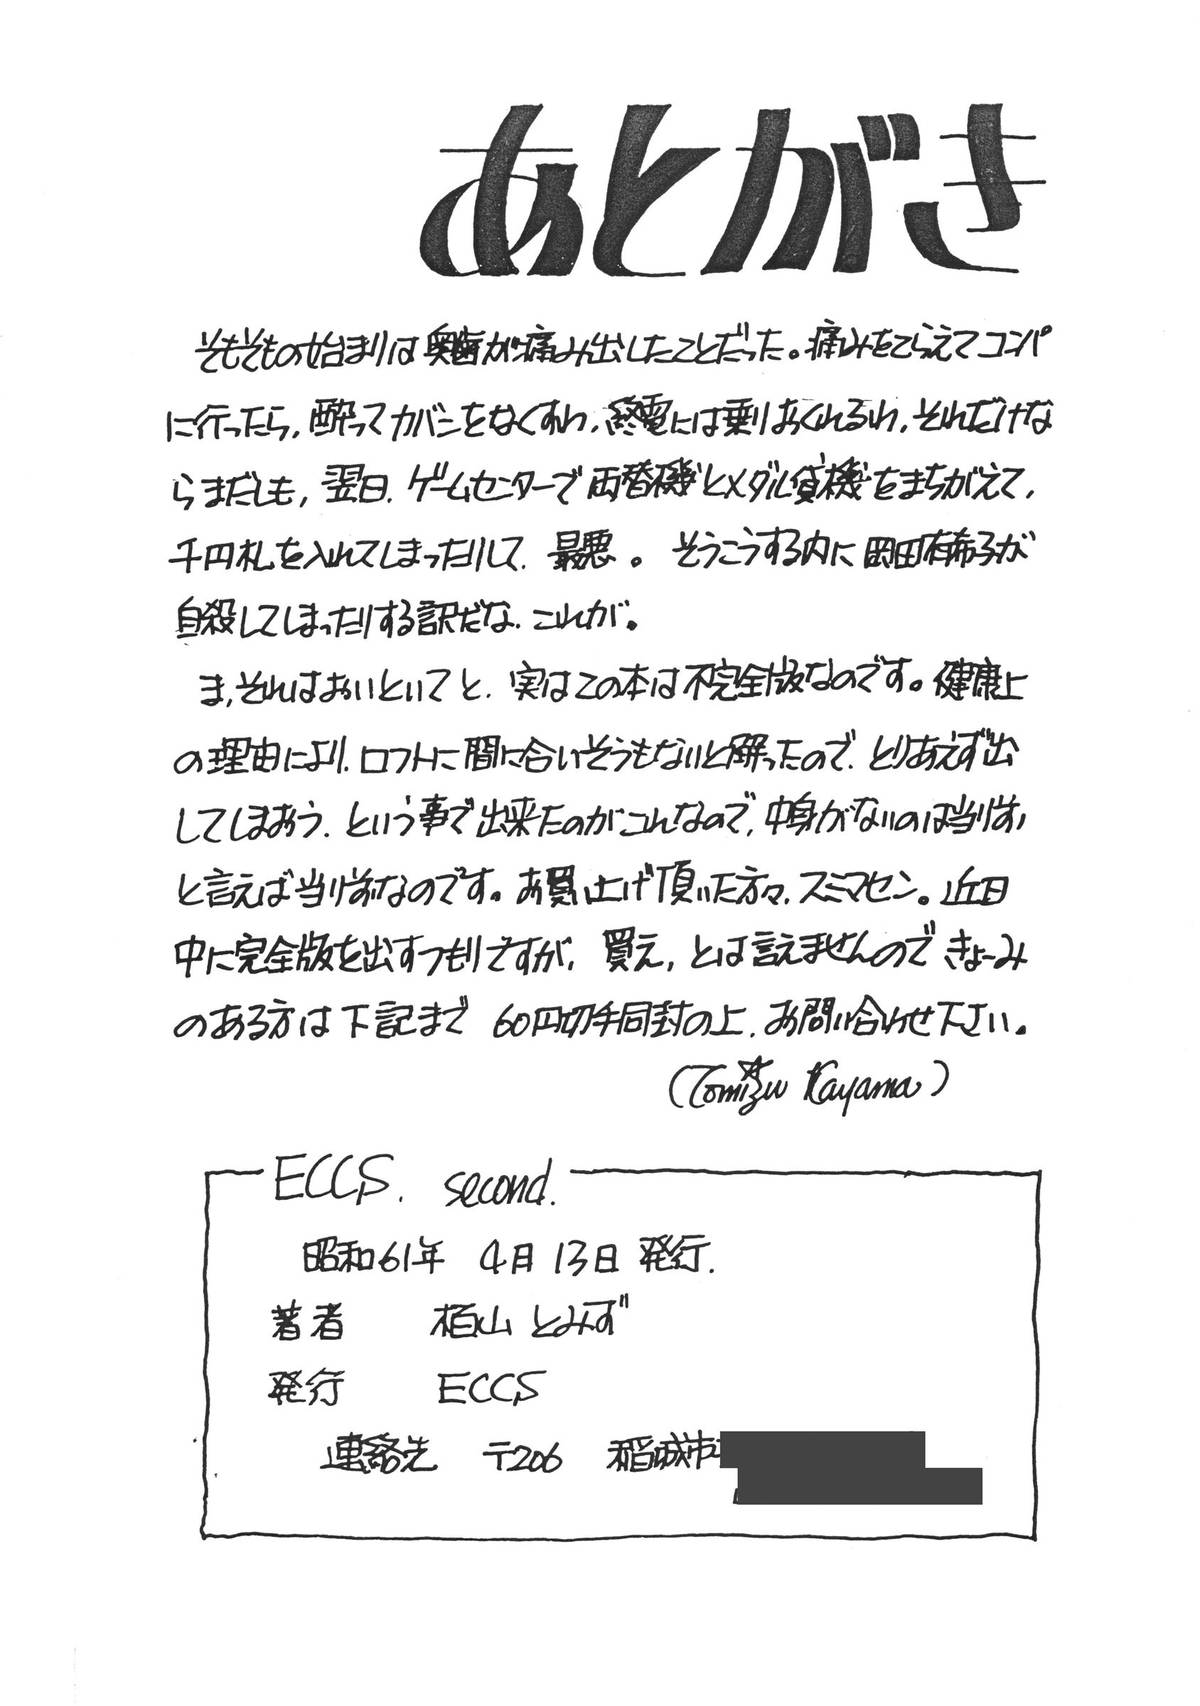 あとがき
そもそもの始まりは奥歯が痛み出したことだった。痛みをこらえてコンパ
に行ったら、酔ってカバンをなくすわ、終電には乗りおくれるわ、それだけな
らまだしも、翌日、ゲームセンターで両替機とメダル貸機をまちがえて、
千円札を入れてしまったりして、最悪。そうこうする内に岡田有希子が
自殺してしまったりする訳だな、これが。
ま、それはおいといてと、実はこの本は不完全版なのです。健康上
の理由により、ロフトに間に合いそうもないと解ったので、とりあえず出
してしまおう、という事で出来たのがこれなので、中身がないのは当り前
と言えば当り前なのです。お買い上げ頂いた方々、スミマセン。近日
中に完全版を出すつもりですが、買え、とは言えませんのできょーみ
のある方は下記まで 60円切手同封の上、お問い合わせ下さい。
(Tomizu Kayama)
ECCS. second.
昭和61年 4月13日発行.
著者 栢山とみず
発行 ECCS
連絡先 〒206 稲城市